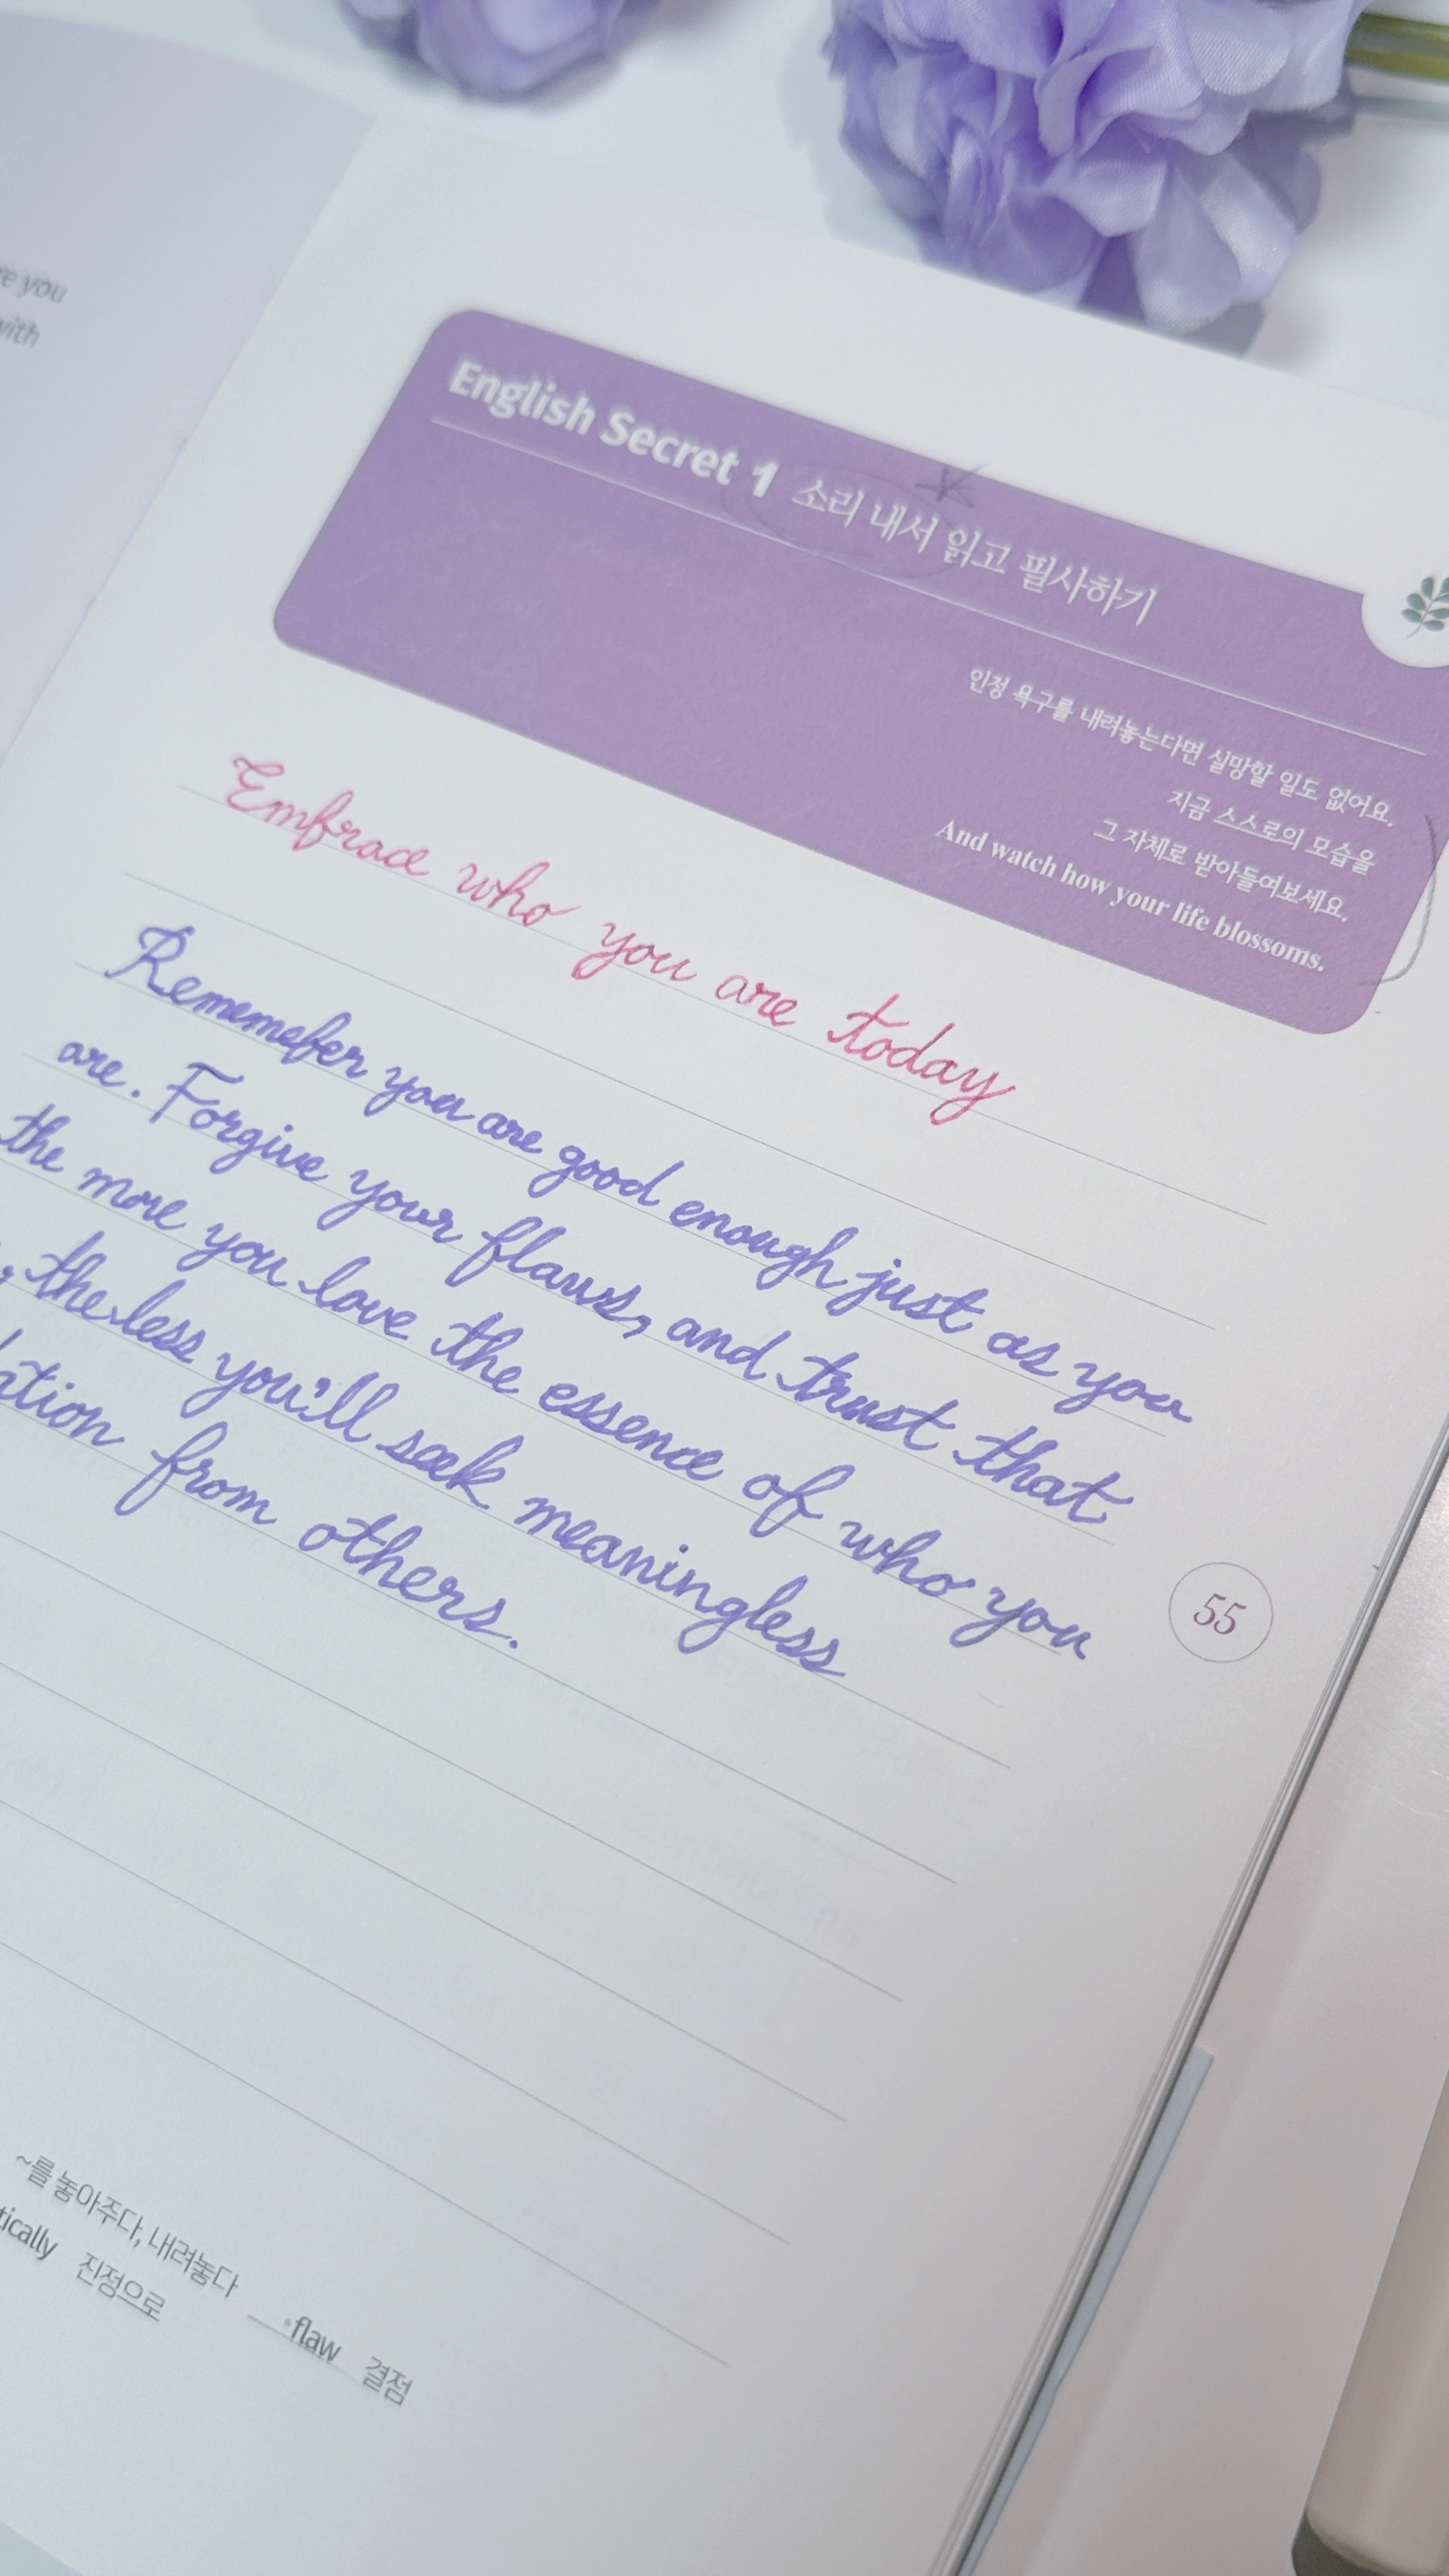 re you
with
English Secret 1 소리 내서 읽고 필사하기
인정 욕구를 내려놓는다면 실망할 일도 없어요.
지금 스스로의 모습을
그 자체로 받아들여보세요.
And watch how your life blossoms.
Embrace who you are today
Rememeber you are good enough just as you
are. Forgive your flaws, and trust that
the more you love the essence of who you
, the less you'll seek meaningless
ation from others.
55
~를 놓아주다, 내려놓다
tically 진정으로
flaw 결점